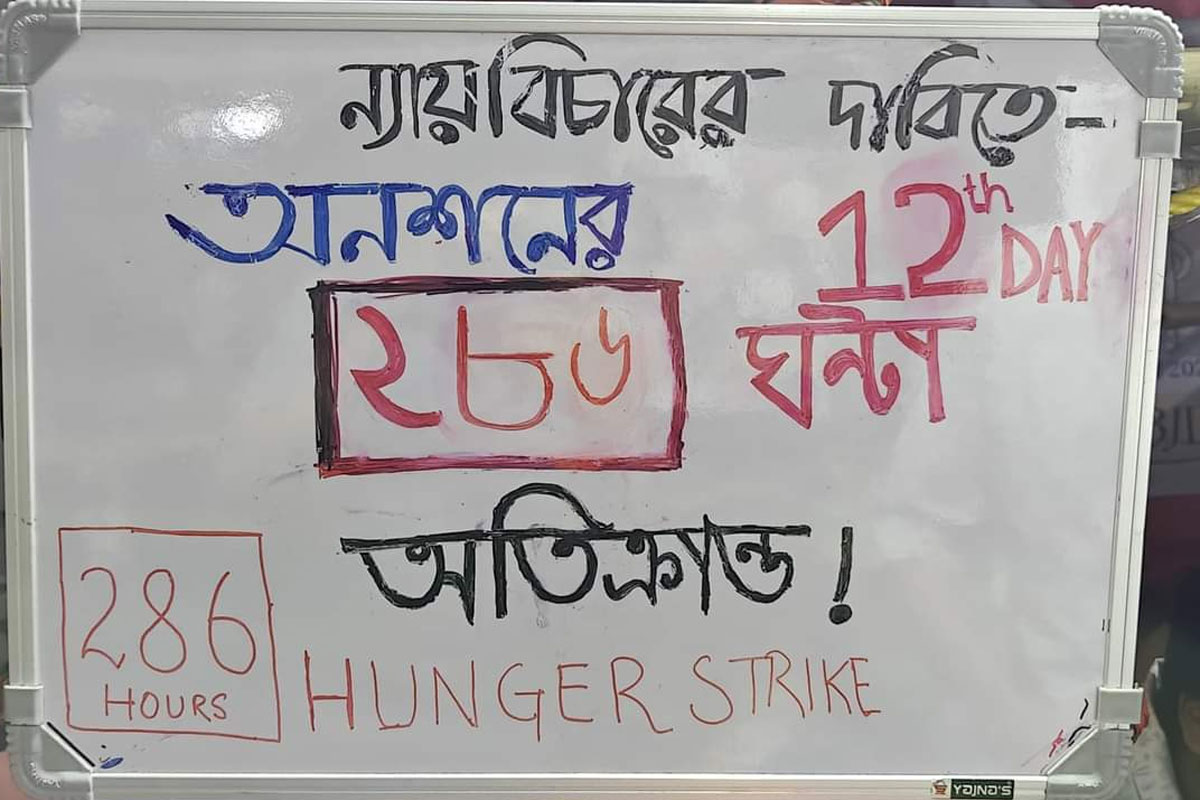 ন্যায়বিচারের দাবিতে-
অনশনের 12th DAY
২৮৬ ঘন্টা
অতিক্রান্ত!
286
HOURS
HUNGER STRIKE
YAJNA'S